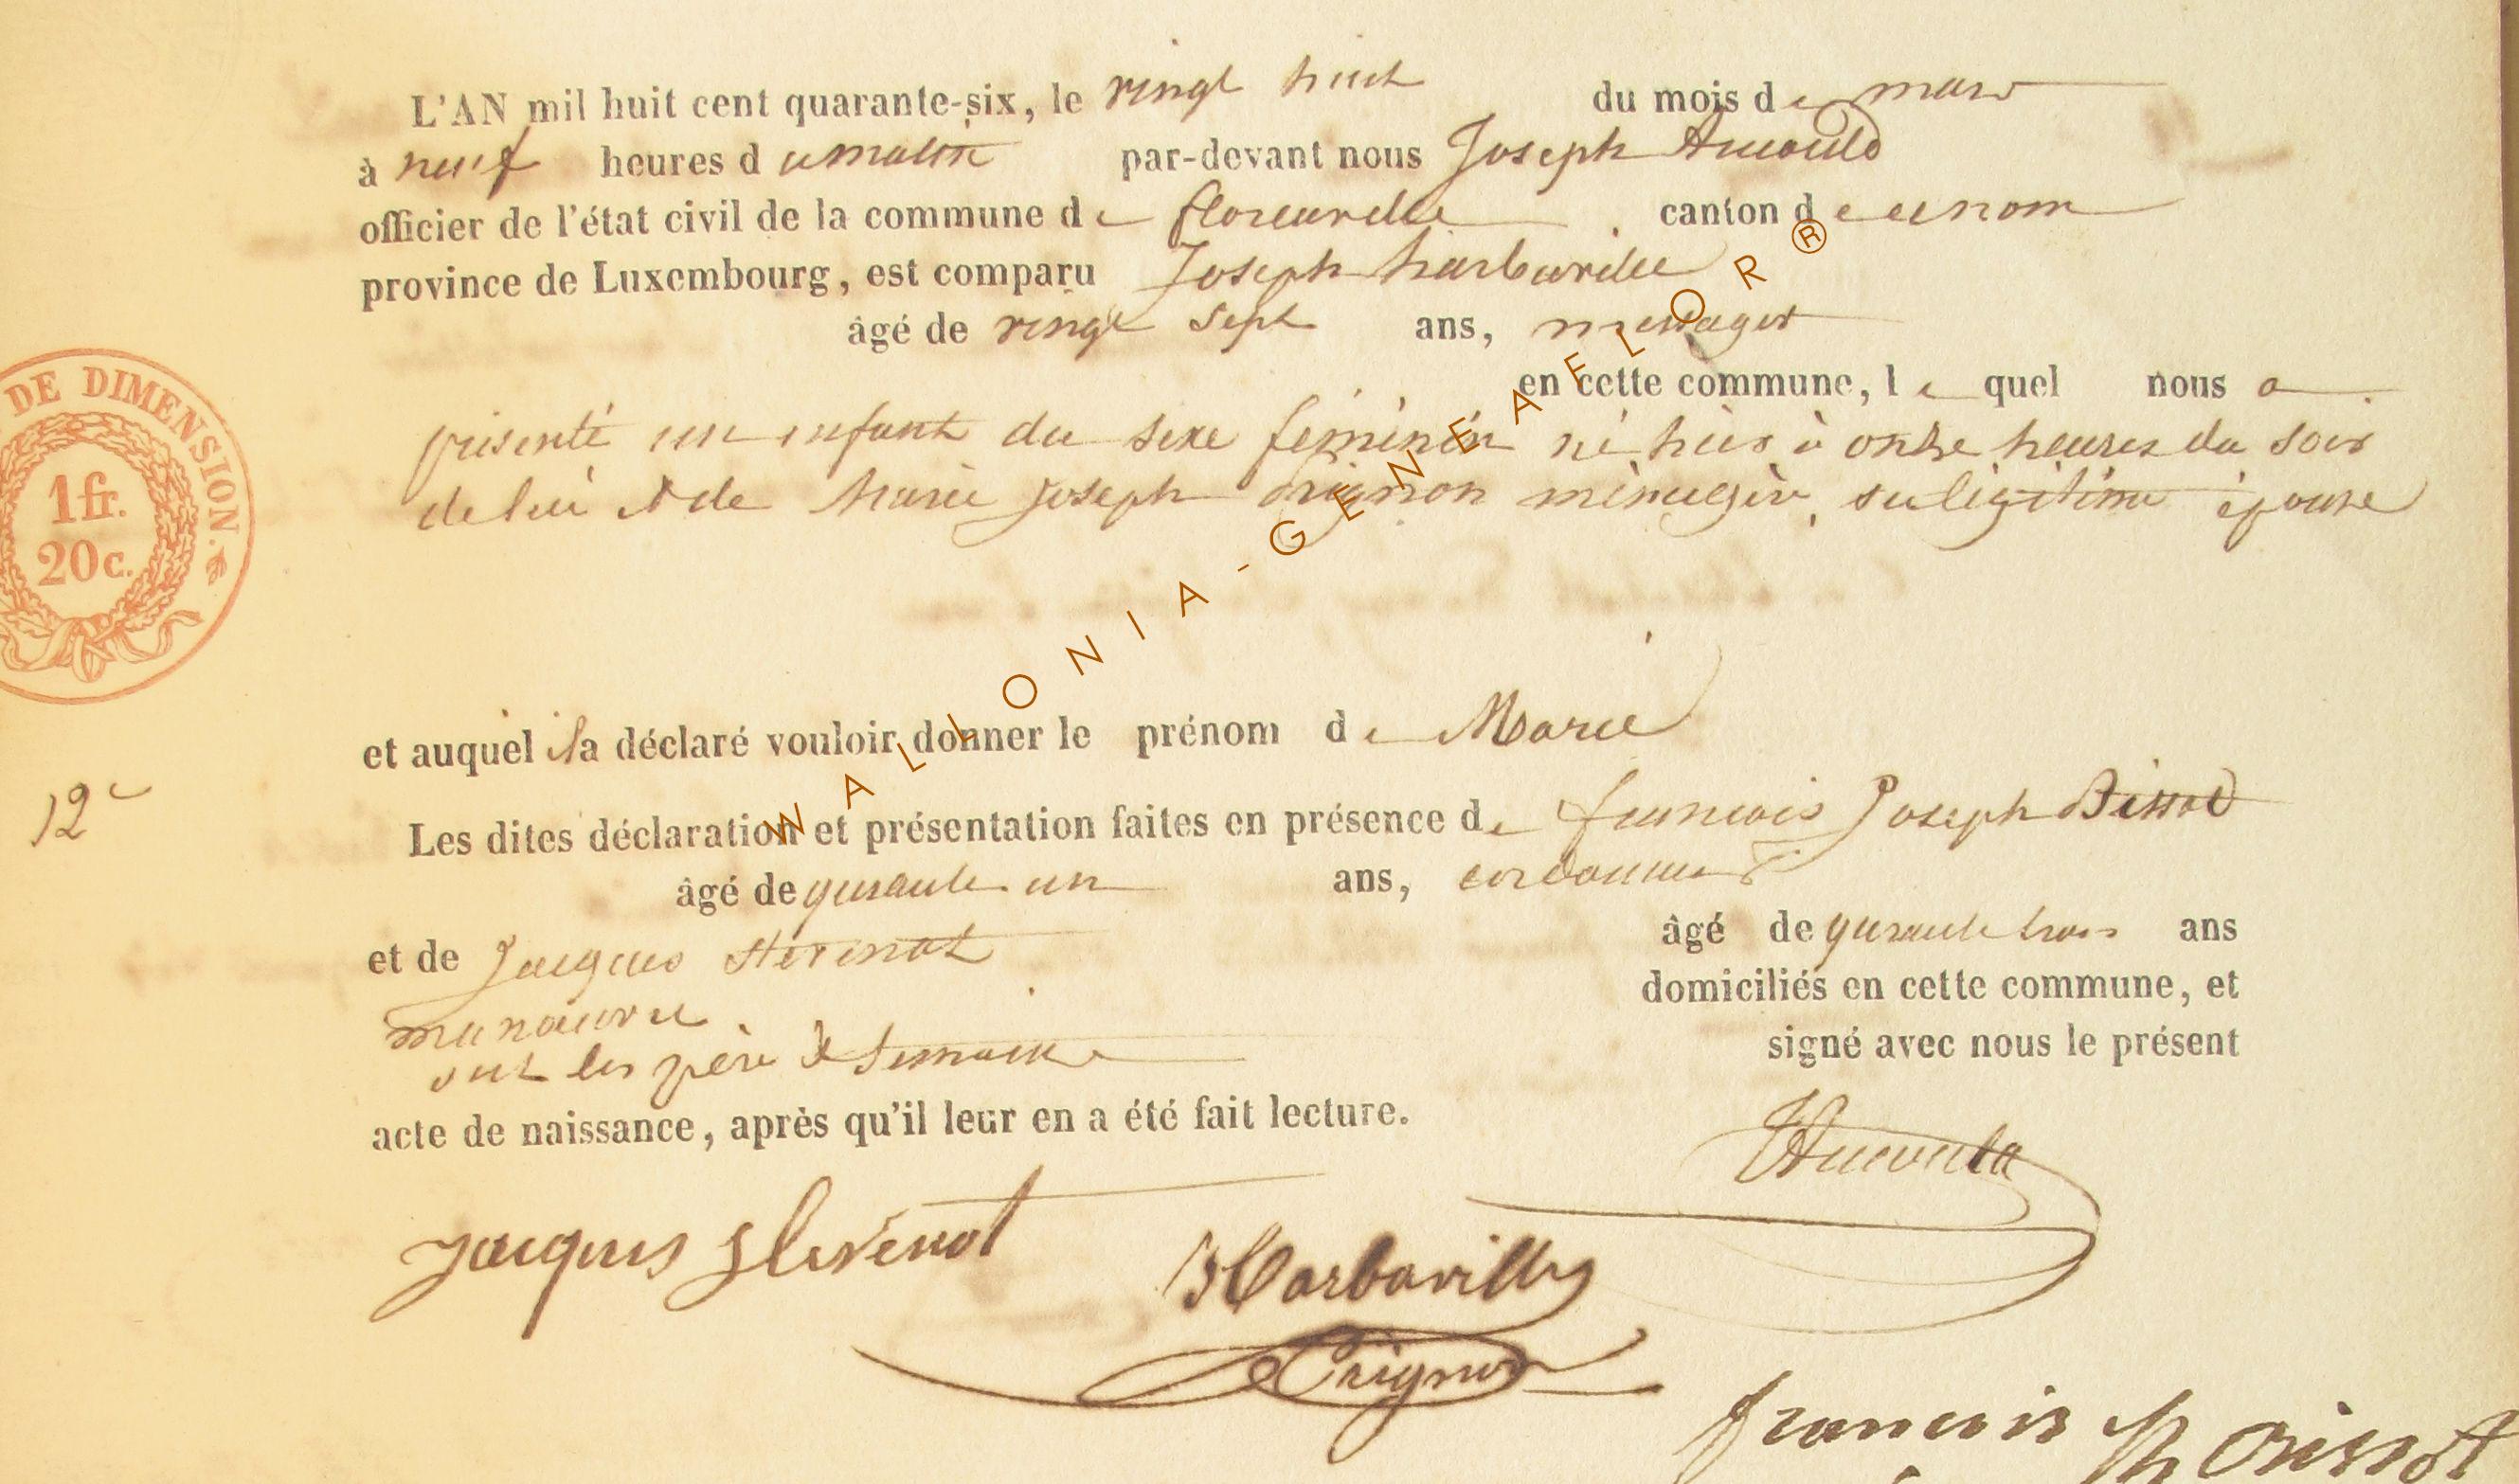 L'AN mil huit cent quarante-six, le vingt huit du mois de mars
à neuf heures du matin par-devant nous Joseph Arnould
officier de l'état civil de la commune de florenville canton de ce nom
province de Luxembourg, est comparu Joseph harbaville
âgé de vingt sept ans, messager
en cette commune, le quel nous a
présenté un enfant du sexe féminin né hier à onze heures du soir
de lui et de Marie Joseph Orignon ménagère, sa légitime épouse
et auquel il a déclaré vouloir donner le prénom de Marie
Les dites déclaration et présentation faites en présence de francois Joseph
âgé de quarante un ans, cordonnier
et de Jacques âgé de quarante trois ans
manœuvre domiciliés en cette commune, et
ont les père et temoins signé avec nous le présent
acte de naissance, après qu'il leur en a été fait lecture.
Jacques
Harbaville
francois
DE DIMENSION.
1 fr.
20 c.
12e
WALLONIA-GENEAFLOR®